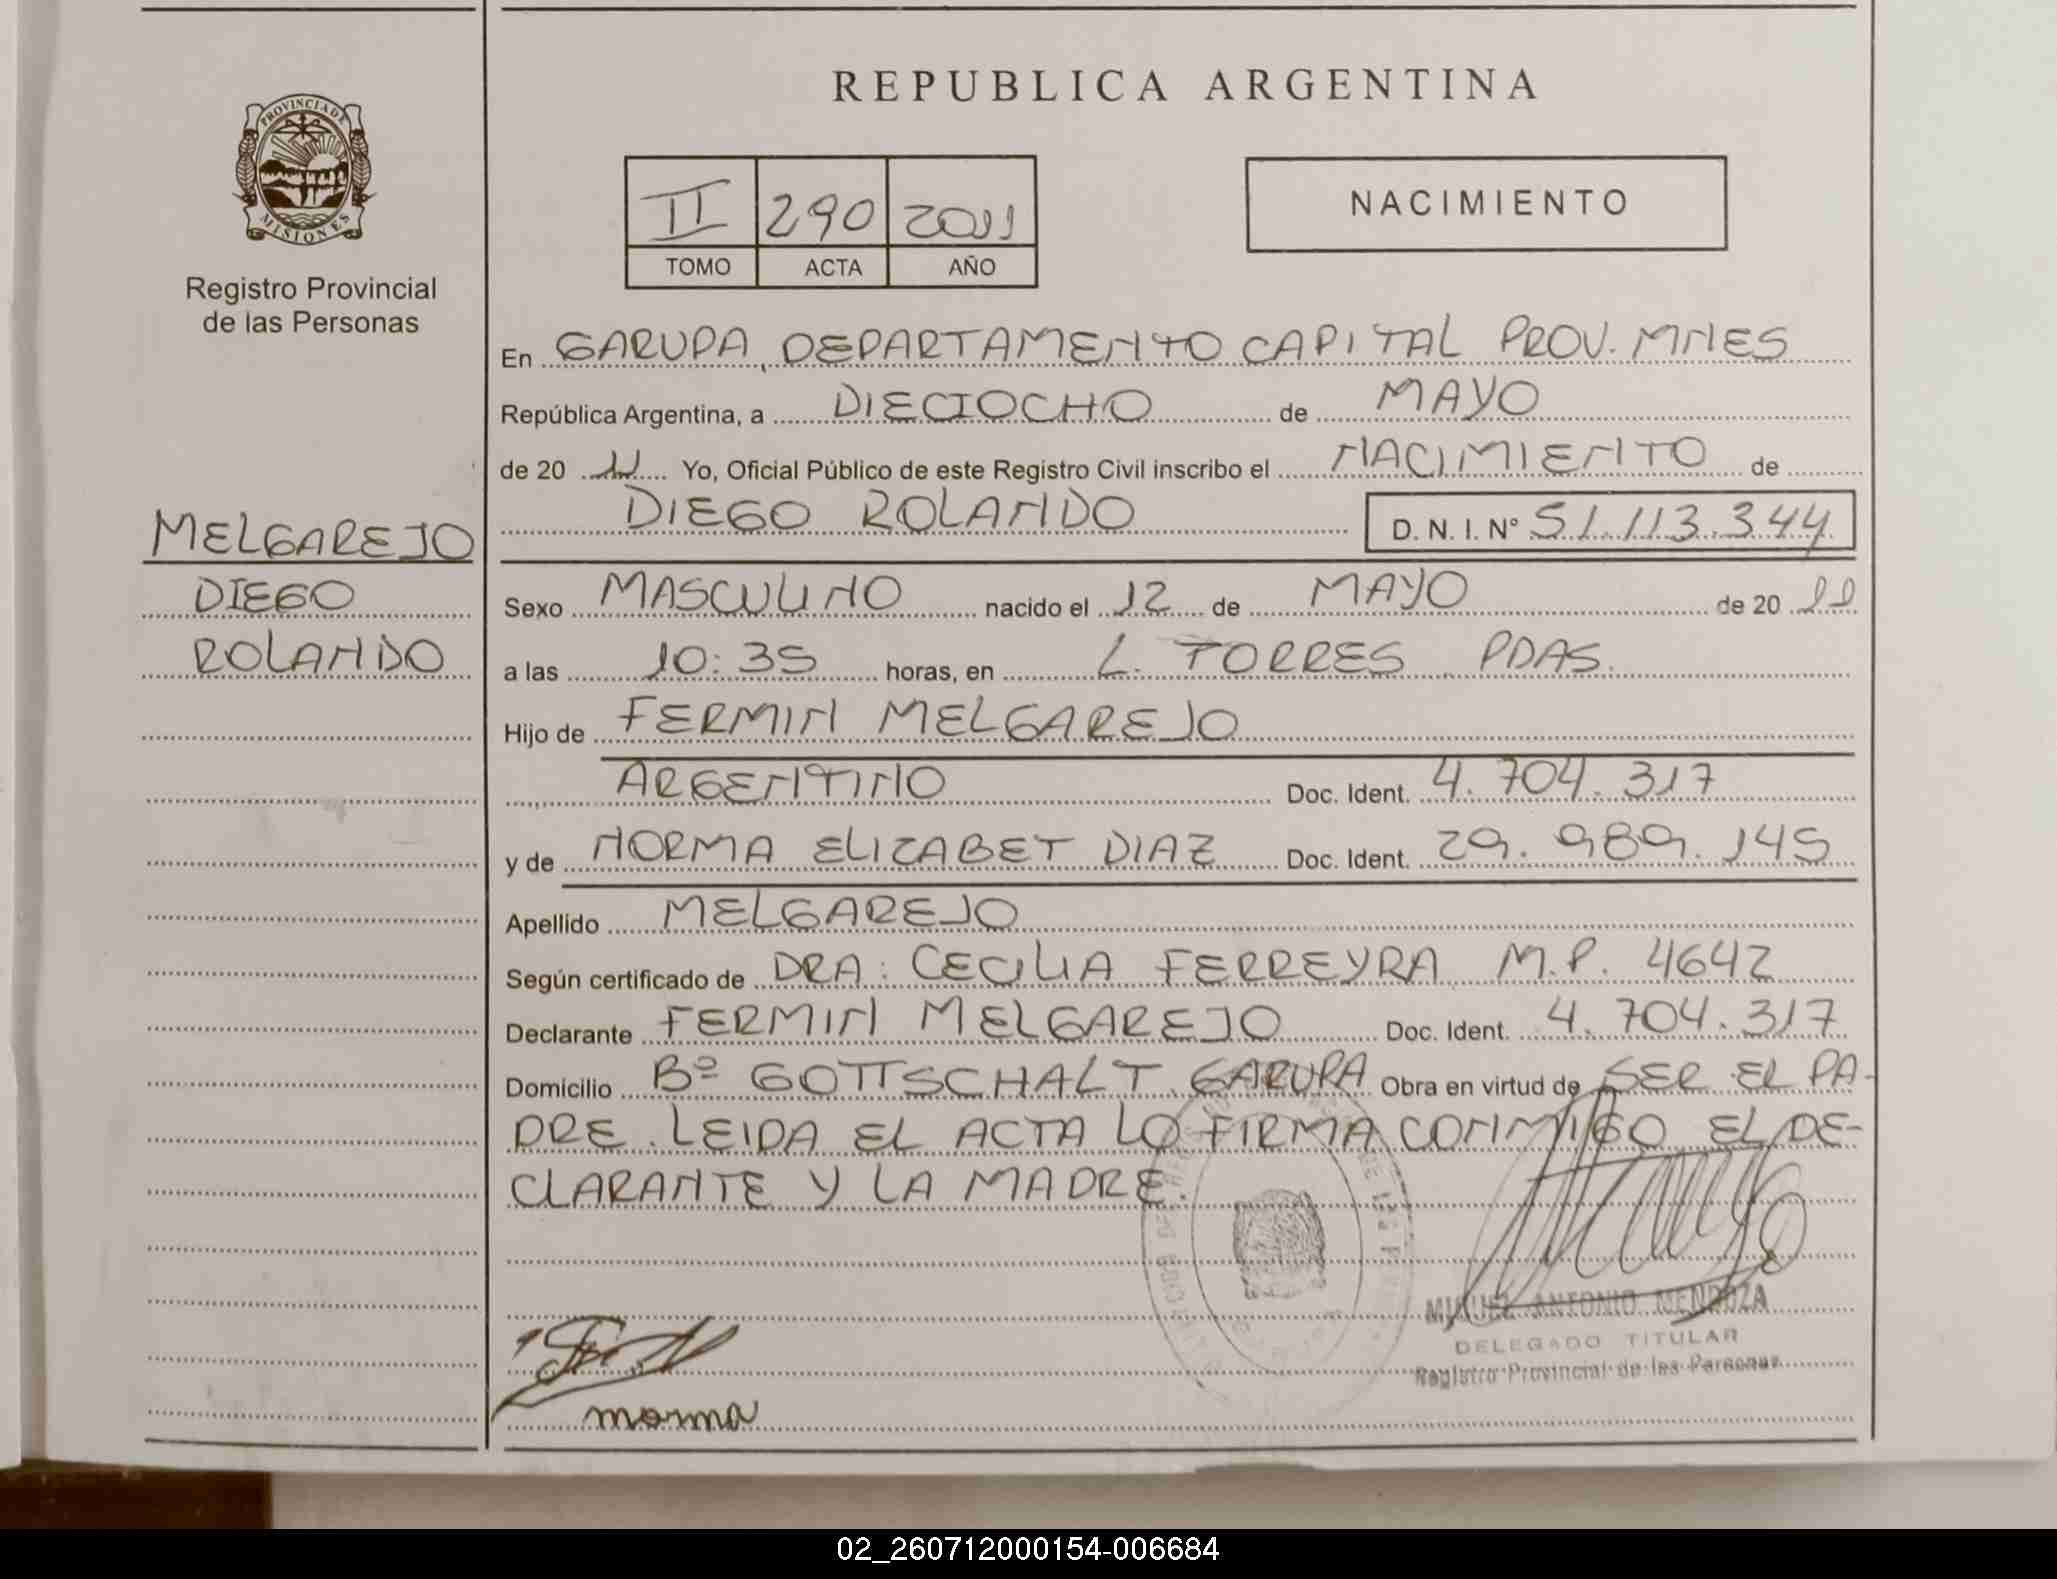 REPUBLICA ARGENTINA
PROVINCIA DE MISIONES
Registro Provincial
de las Personas
II 290 2011
TOMO ACTA AÑO
NACIMIENTO
En GARUPA, DEPARTAMENTO CAPITAL PROV. MNES
República Argentina, a DIECIOCHO de MAYO
de 20 11 Yo, Oficial Público de este Registro Civil inscribo el NACIMIENTO de
DIEGO ROLANDO D. N. I. Nº 51.113.344
MELGAREJO
DIEGO
ROLANDO
Sexo MASCULINO nacido el 12 de MAYO de 20 11
a las 10:35 horas, en L. TORRES PDAS.
Hijo de FERMIN MELGAREJO
ARGENTINO Doc. Ident. 4.704.317
y de NORMA ELIZABET DIAZ Doc. Ident. 29.989.145
Apellido MELGAREJO
Según certificado de DRA: CECILIA FERREYRA M.P. 4642
Declarante FERMIN MELGAREJO Doc. Ident. 4.704.317
Domicilio Bº GOTTSCHALT GARUPA Obra en virtud de SER EL PA-
DRE. LEIDA EL ACTA LO FIRMA CONMIGO EL DE-
CLARANTE Y LA MADRE.
MIGUEL ANTONIO MENDOZA
DELEGADO TITULAR
Registro Provincial de las Personas
norma
02_260712000154-006684